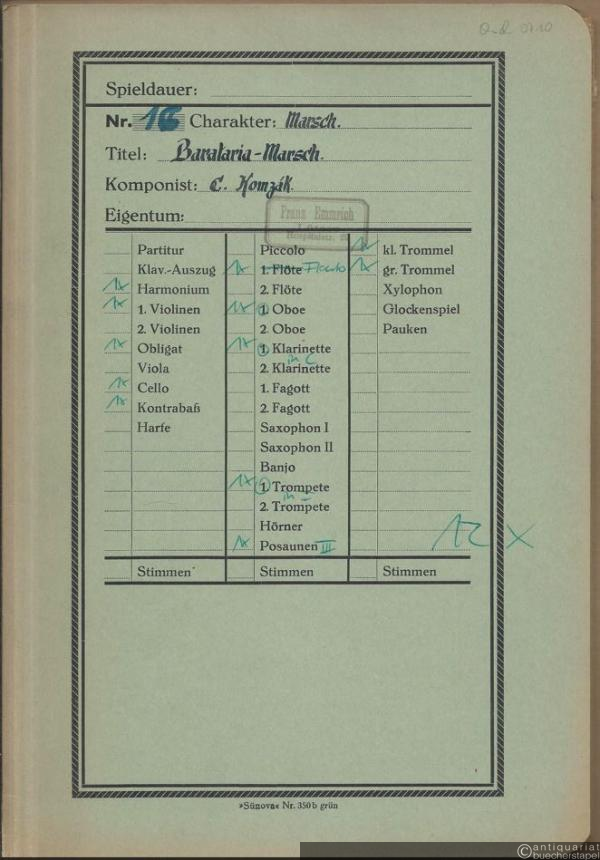 Spieldauer:
Nr. 16 Charakter: Marsch.
Titel: Barataria-Marsch.
Komponist: C. Komzák.
Eigentum:
Franz Emmrich
Partitur
Klav.-Auszug
1x Harmonium
1x 1. Violinen
2. Violinen
1x Obligat
Viola
1x Cello
1x Kontrabaß
Harfe
Stimmen
Piccolo
1x 1. Flöte Piccolo
2. Flöte
1x 1. Oboe
2. Oboe
1x 1. Klarinette
in C
2. Klarinette
1. Fagott
2. Fagott
Saxophon I
Saxophon II
Banjo
1x 1. Trompete
in
2. Trompete
Hörner
1x Posaunen III
Stimmen
1x kl. Trommel
1x gr. Trommel
Xylophon
Glockenspiel
Pauken
12 x
Stimmen
»Sünova« Nr. 350 b grün
antiquariat
buecherstapel